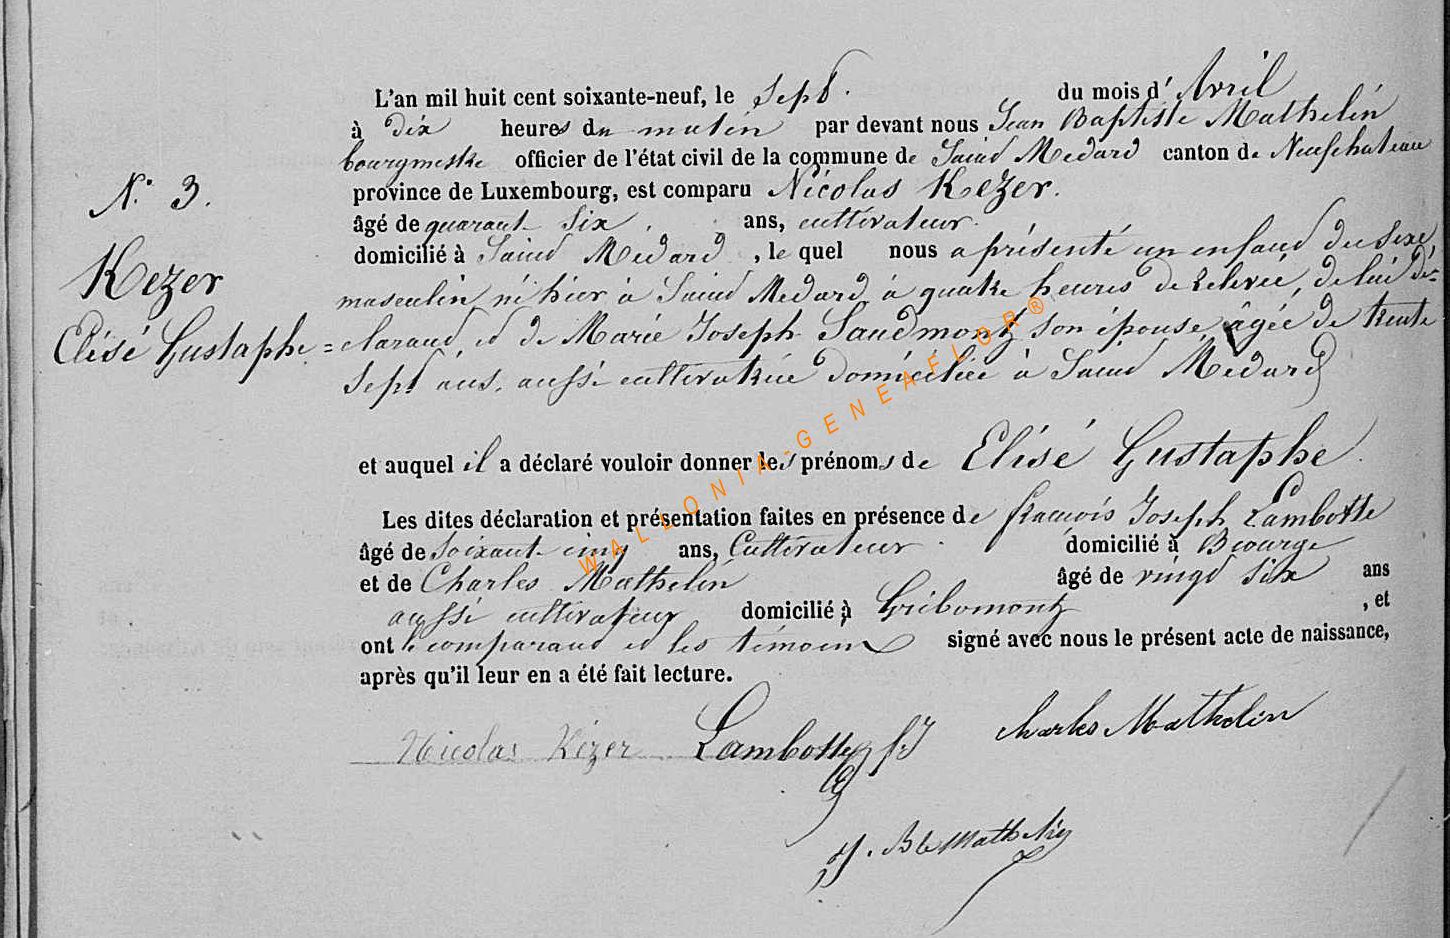 L'an mil huit cent soixante-neuf, le Sept. du mois d' Avril
à dix heures du matin par devant nous Jean Baptiste Mathelin
bourgmestre officier de l'état civil de la commune de Saint Medard canton de Neufchateau
province de Luxembourg, est comparu Nicolas Kezer.
N.° 3.
âgé de quarante six ans, cultivateur
domicilié à Saint Medard, le quel nous a présenté un enfant du sexe
Kezer
masculin né hier à Saint Medard à quatre heures de relevée, de lui dé=
Elisé Gustaphe =
clarant et de Marie Joseph Saudmont son épouse, âgée de trente
sept ans, aussi cultivatrice domiciliée à Saint Médard
et auquel il a déclaré vouloir donner les prénoms de Elisé Gustaphe.
Les dites déclaration et présentation faites en présence de francois Joseph Lambotte
âgé de soixante cinq ans, Cultivateur domicilié à Biourge
et de Charles Mathelin âgé de vingt six ans
aussi cultivateur domicilié à Gribomont, et
ont le comparant et les témoins signé avec nous le présent acte de naissance,
après qu'il leur en a été fait lecture.
Nicolas Kezer Lambotte f. J Charles Mathelin
J. Bte Mathelin
WALLONIA-GENEAFLOR®